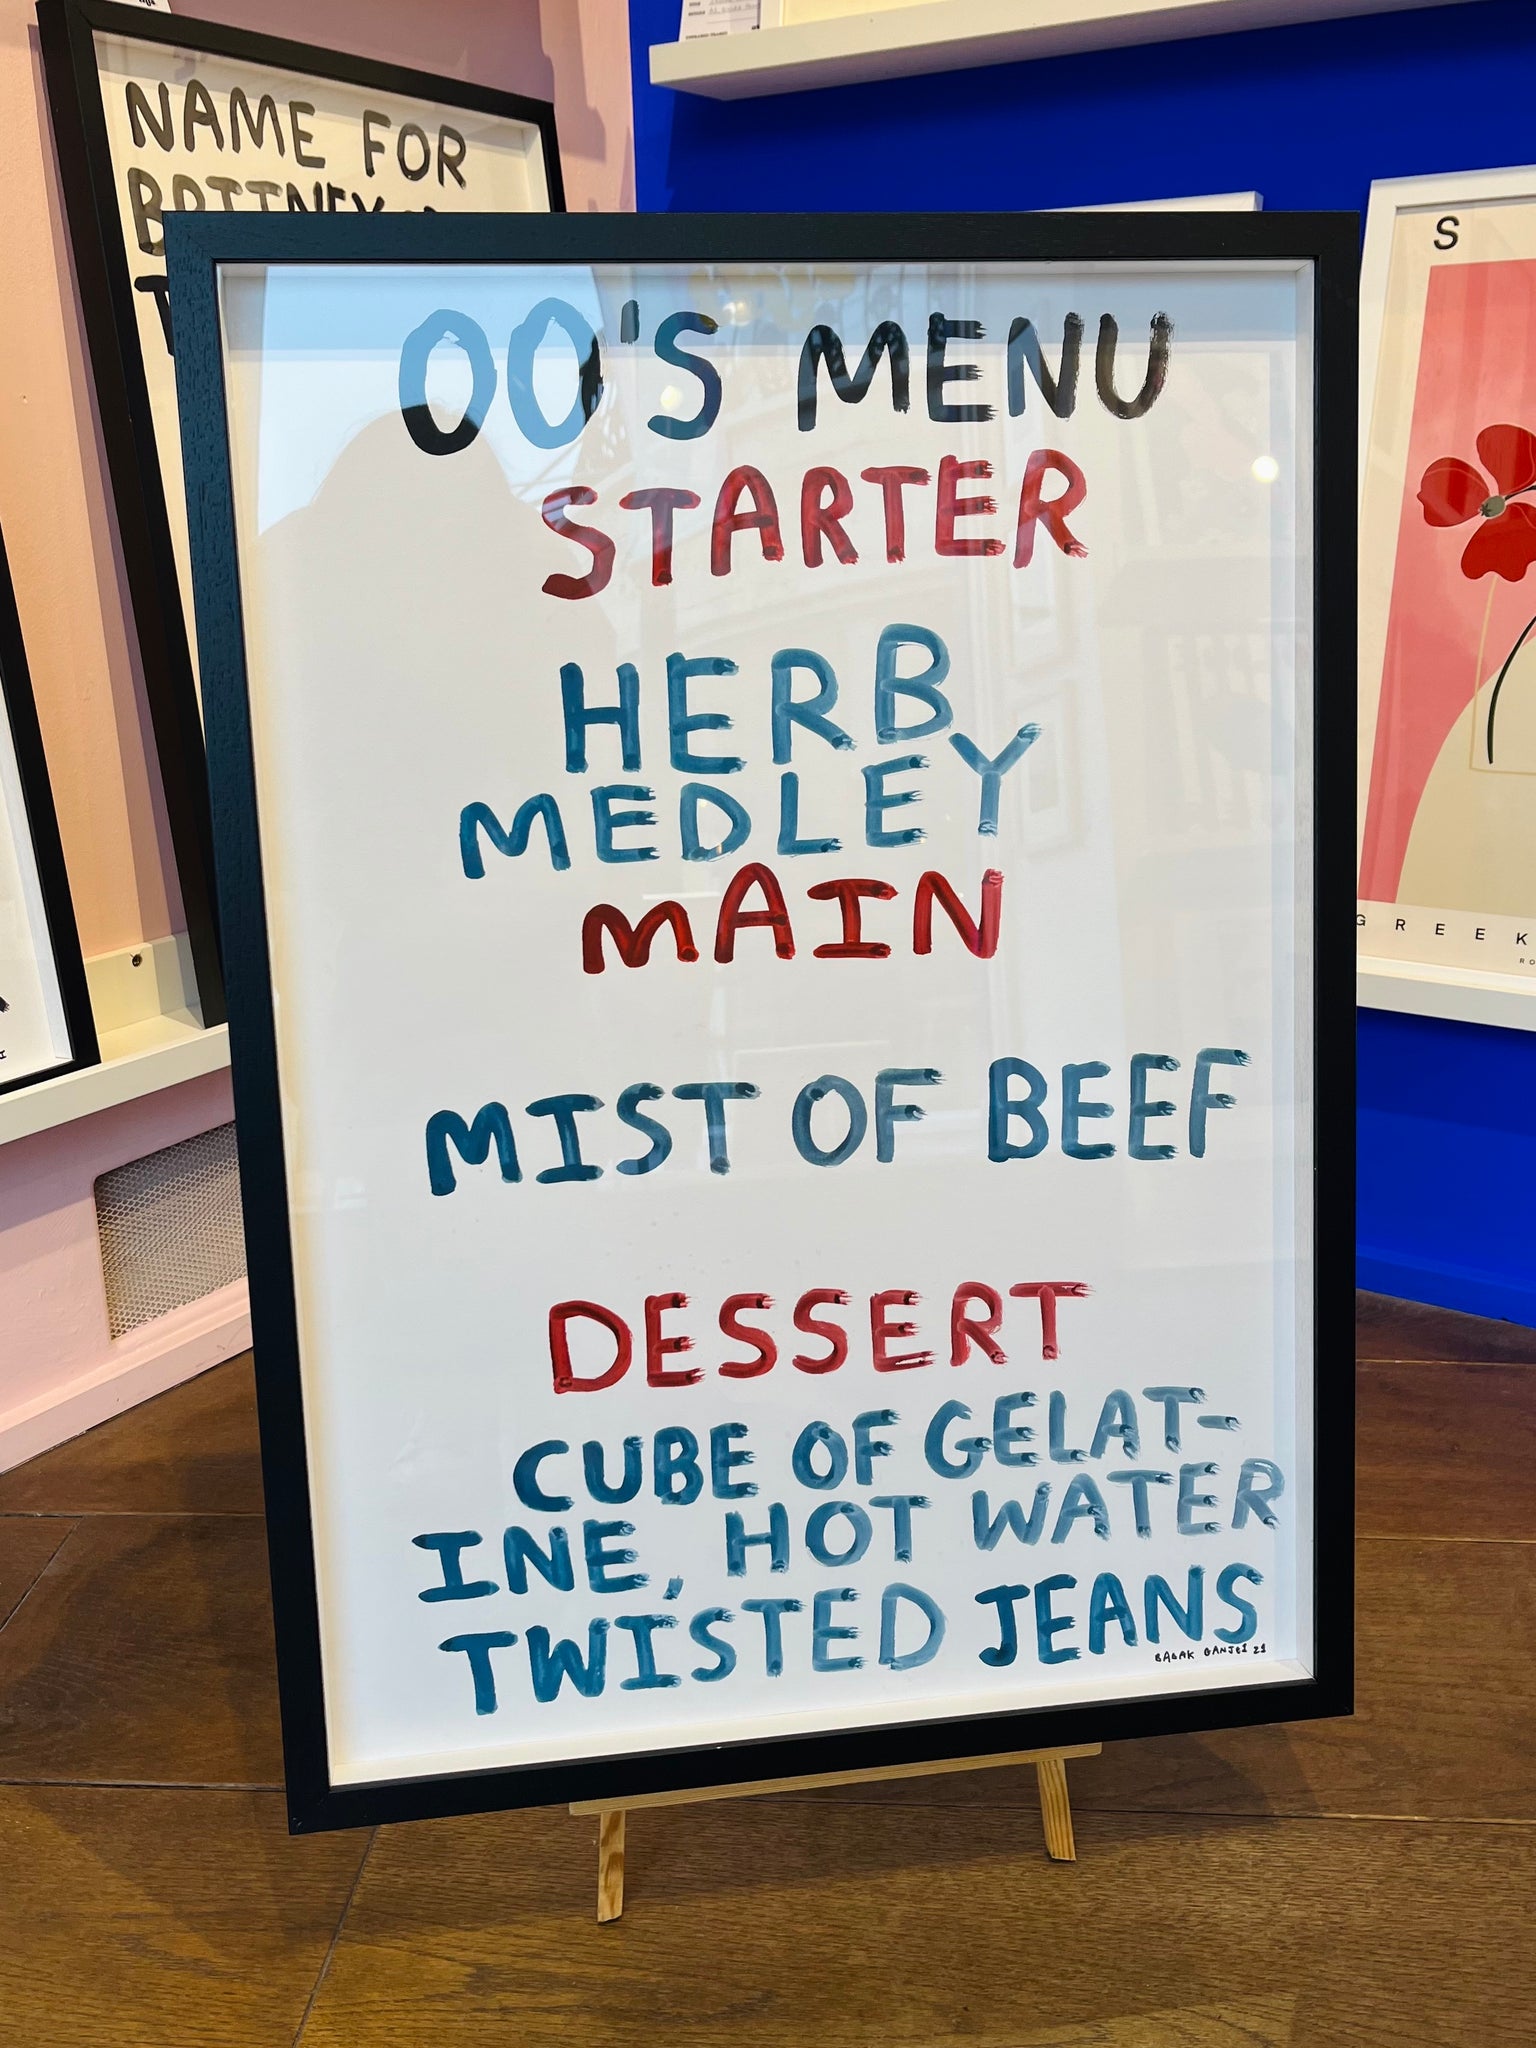 NAME FOR
BRITNEY
OO'S MENU
STARTER
HERB
MEDLEY
MAIN
MIST OF BEEF
DESSERT
CUBE OF GELAT-
INE, HOT WATER
TWISTED JEANS
BABAK GANJEI 21
S
GREEK